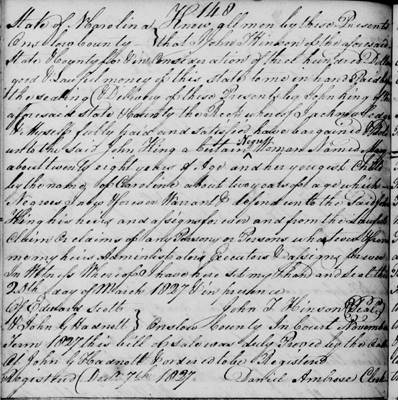 148
State of N Carolina } Know all men by these Presents
Onslow County } that I John Hinson of the aforesaid
State & County for & in Consideration of three hundred Dollars
good & lawful money of this state to me in hand paid at
the sealing & Delivery of these Presents by John King of the
aforesaid state & County the Rec't whereof I acknowledge
& myself fully paid and satisfied have bargained & sold
unto the Said John King a certain Negroe Woman Named
about twenty eight years of Age and her youngest Child
by the name of Caroline about two years of age which
Negroes I do forever Warrant & defend unto the Said John
King his heirs and assigns forever and from the lawful
Claim or claims of any Person or Persons whatsoever from
me my heirs Administrators Executors & assigns forever
In Witness Whereof I have here set my hand and seal this
28th day of March 1827 in presence
of Edward Scott John T Hinson (Seal)
John G Hasnell } Onslow County In Court November
Term 1827 this bill of sale was duly Proved by the Oath
of John G Hasnell & ordered to be Registered
Registered Dec 7th 1827 Daniel Ambrose Clerk